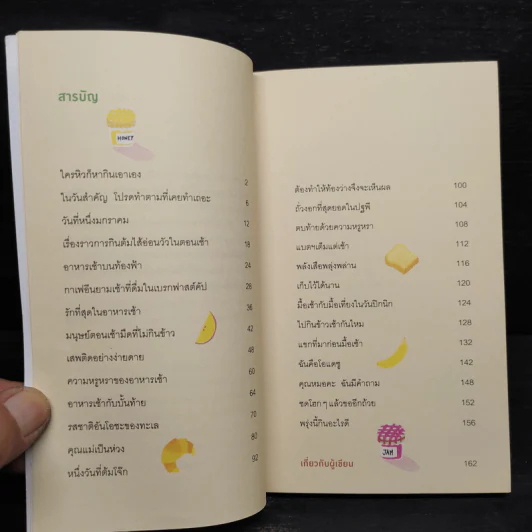 สารบัญ
HONEY
ใครหิวก็หากินเอาเอง 2
ในวันสำคัญ โปรดทำตามที่เคยทำเถอะ 6
วันที่หนึ่งมกราคม 12
เรื่องราวการกินต้มไส้อ่อนวัวในตอนเช้า 18
อาหารเช้าบนท้องฟ้า 24
กาแฟอึนยามเช้าที่ดื่มในเบรกฟาสต์คัป 28
รักที่สุดในอาหารเช้า 36
มนุษย์ตอนเช้ามืดที่ไม่กินข้าว 42
เสพติดอย่างง่ายดาย 48
ความหรูหราของอาหารเช้า 60
อาหารเช้ากับบั้นท้าย 64
รสชาติอันโอชะของทะเล 70
คุณแม่เป็นห่วง 80
หนึ่งวันที่ต้มโจ๊ก 92
ต้องทำให้ท้องว่างจึงจะเห็นผล 100
ถั่วงอกที่สุดยอดในปฐพี 104
ตบท้ายด้วยความหรูหรา 108
แบตฯเต็มแต่เช้า 112
พลังเสือพลุ่งพล่าน 116
เก็บไว้ได้นาน 120
มื้อเช้ากับมื้อเที่ยงในวันปิกนิก 124
ไปกินข้าวเช้ากันไหม 128
แขกที่มาก่อนมื้อเช้า 132
ฉันคือโอแดซู 142
คุณหมอคะ ฉันมีคำถาม 148
ซดโฮกๆ แล้วขออีกถ้วย 152
พรุ่งนี้กินอะไรดี 156
JAM
เกี่ยวกับผู้เขียน 162